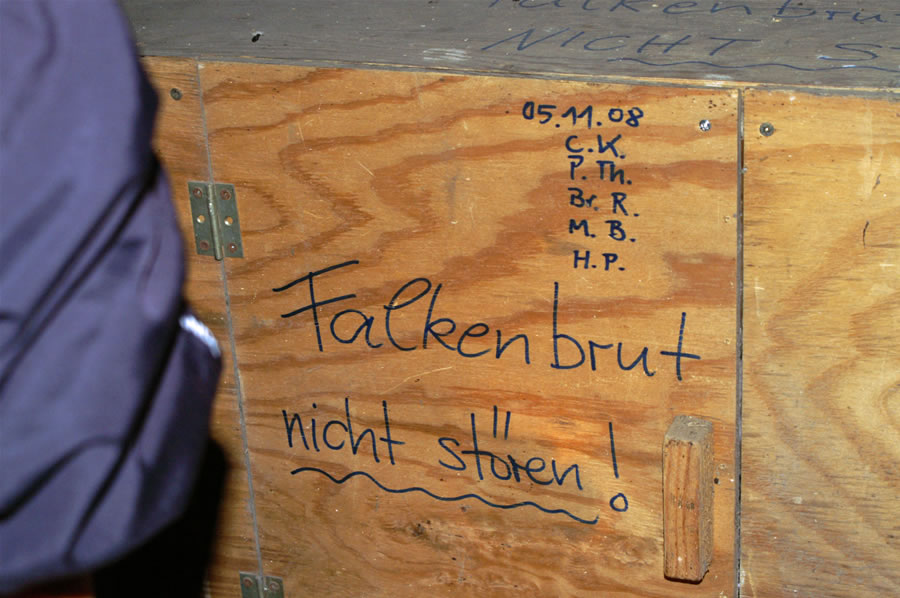 Falkenbrut
NICHT
05.11.08
C.K.
P.Th.
Br. R.
M. B.
H.P.
Falkenbrut
nicht stören!